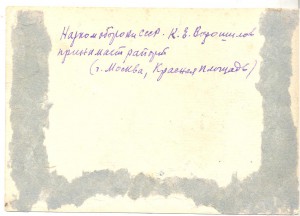 Нарком обороны СССР - К. Е. Ворошилов
принимает рапорт
(г. Москва, Красная площадь)